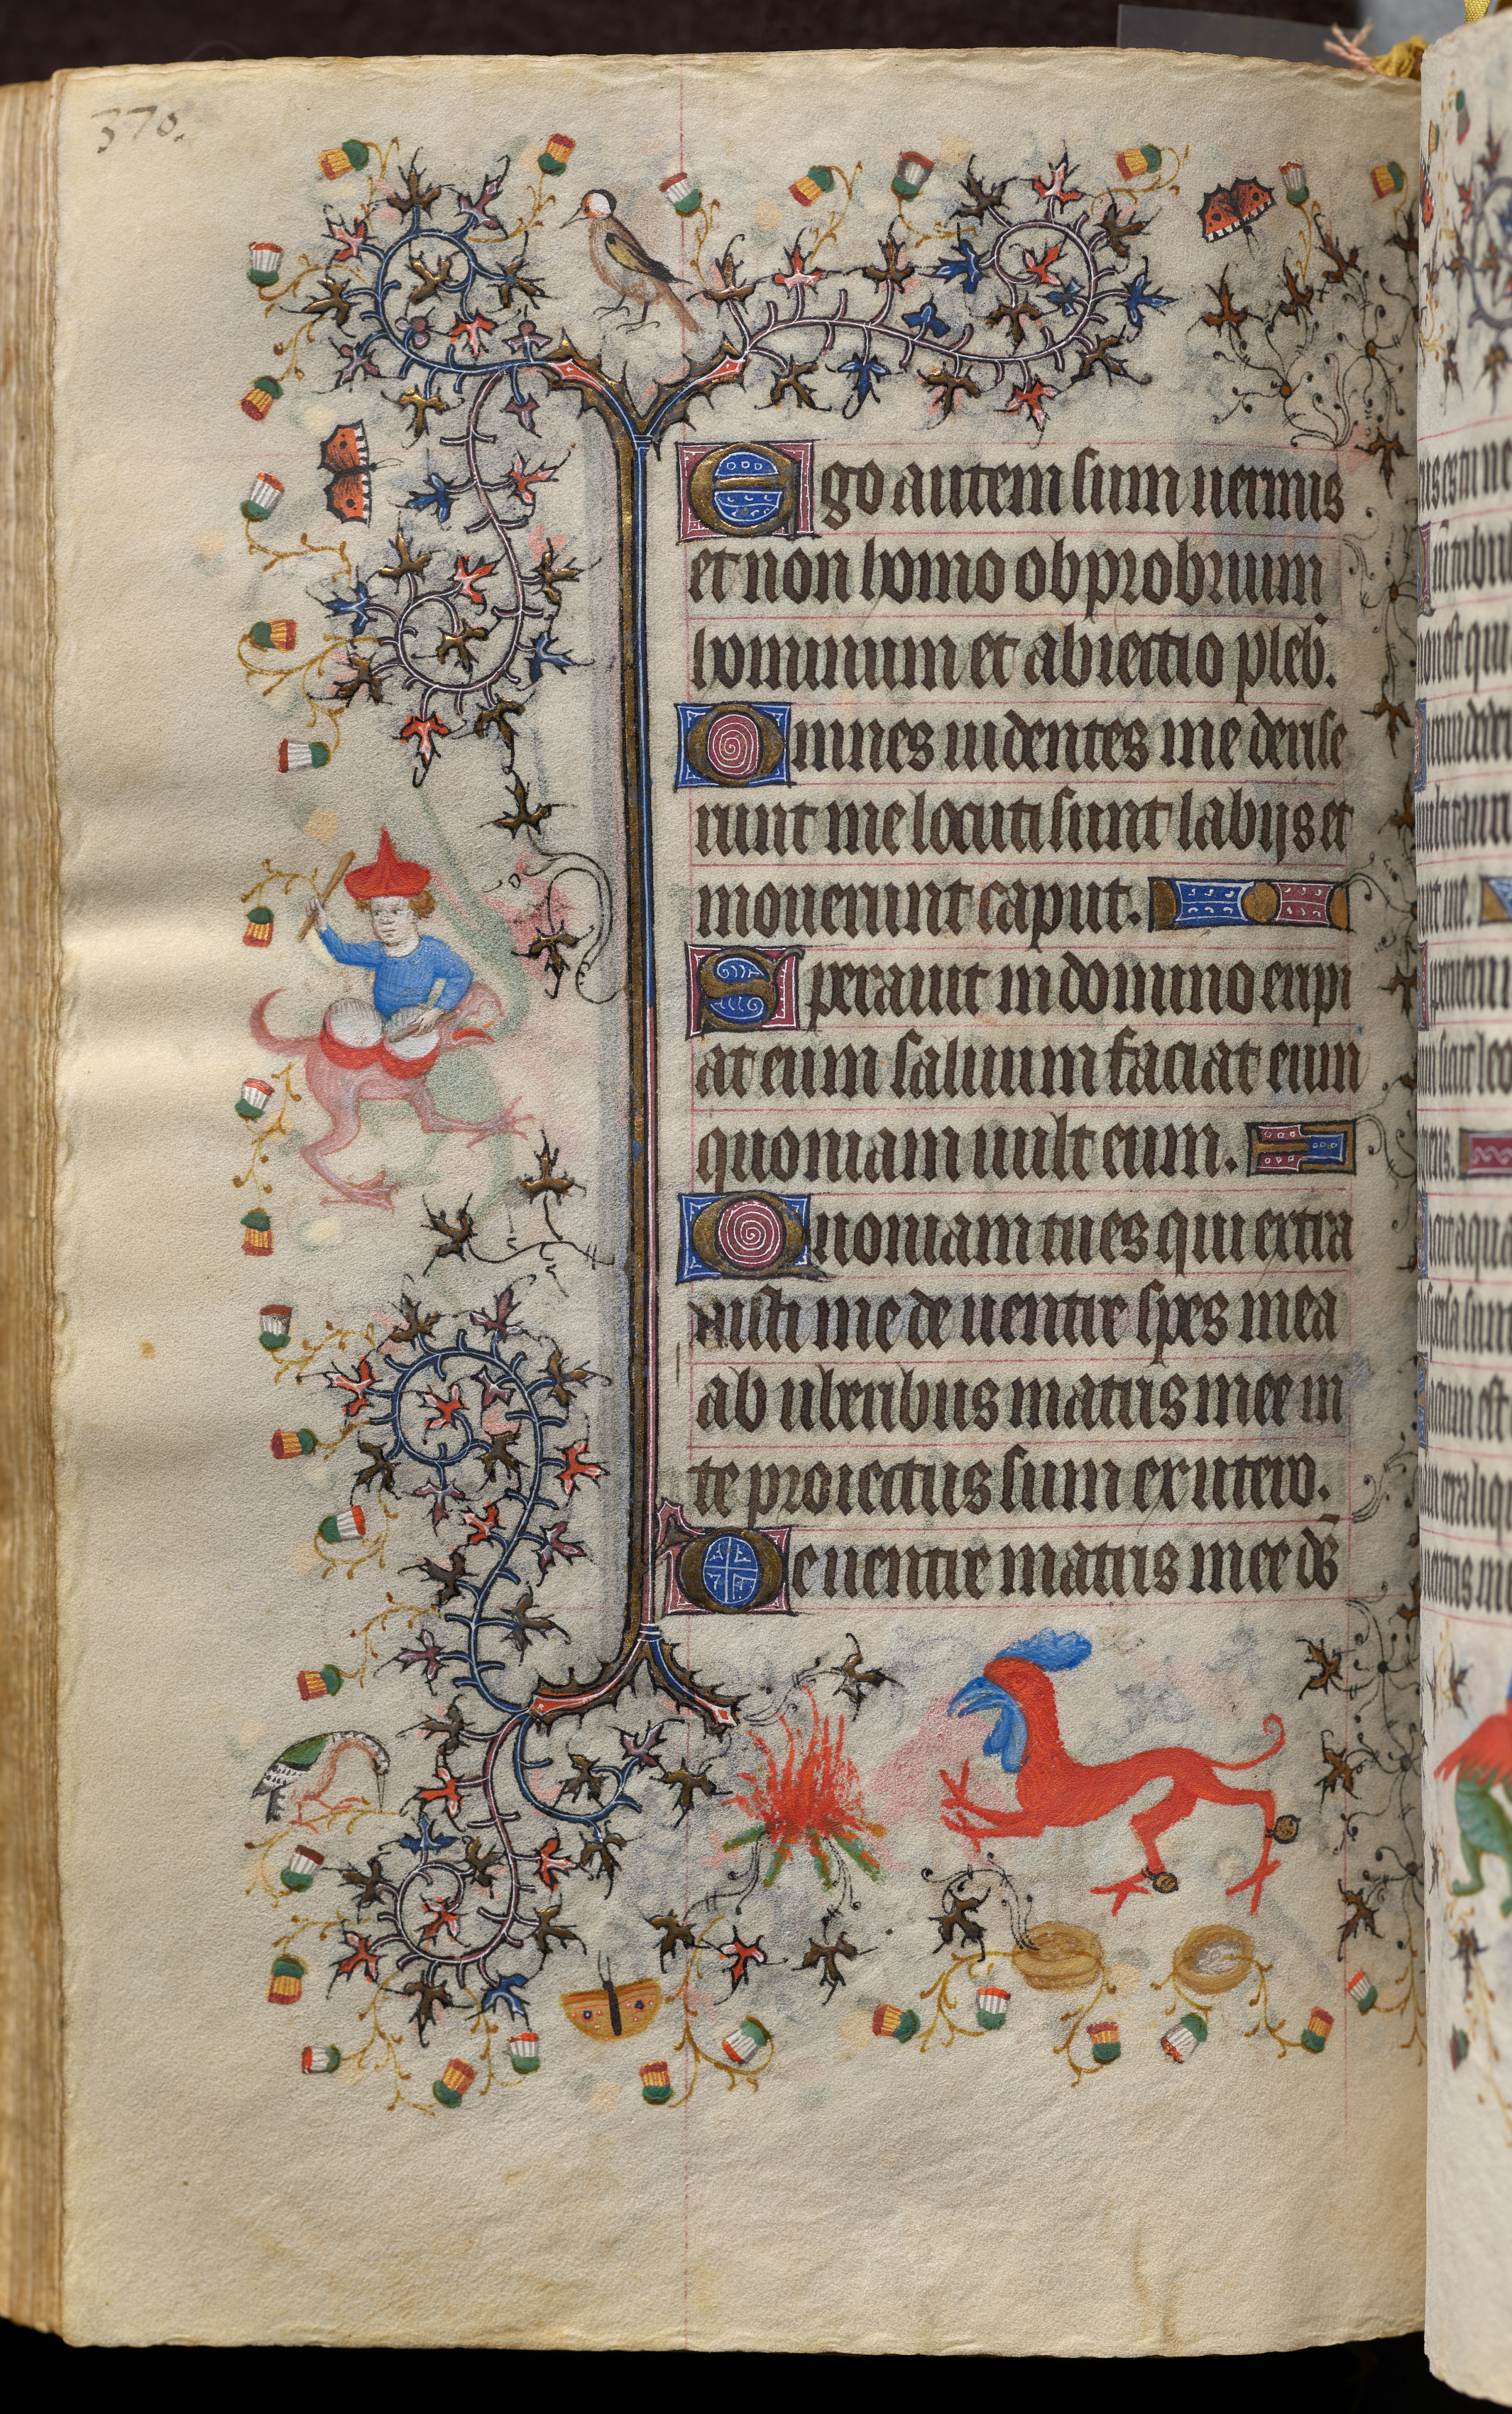 370.
Ego autem sum uermis
et non homo obprobrium
hominum et abiectio pleb̄.
Omnes uidentes me derise
runt me locuti sunt labijs et
mouerunt caput.
Sperauit in domino eripi
at eum saluum faciat eum
quoniam uult eum.
Quoniam tu es qui extra
xisti me de uentre spes mea
ab uberibus matris mee in
te proiectus sum ex utero.
De uentre matris mee ds̄